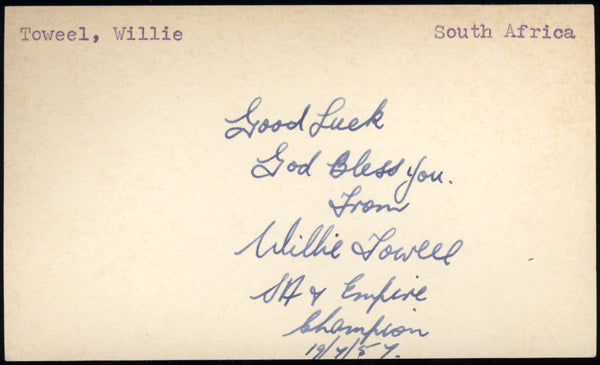 Toweel, Willie South Africa
Good Luck
God Bless you.
From
Willie Toweel
SA & Empire
Champion
19/7/57.